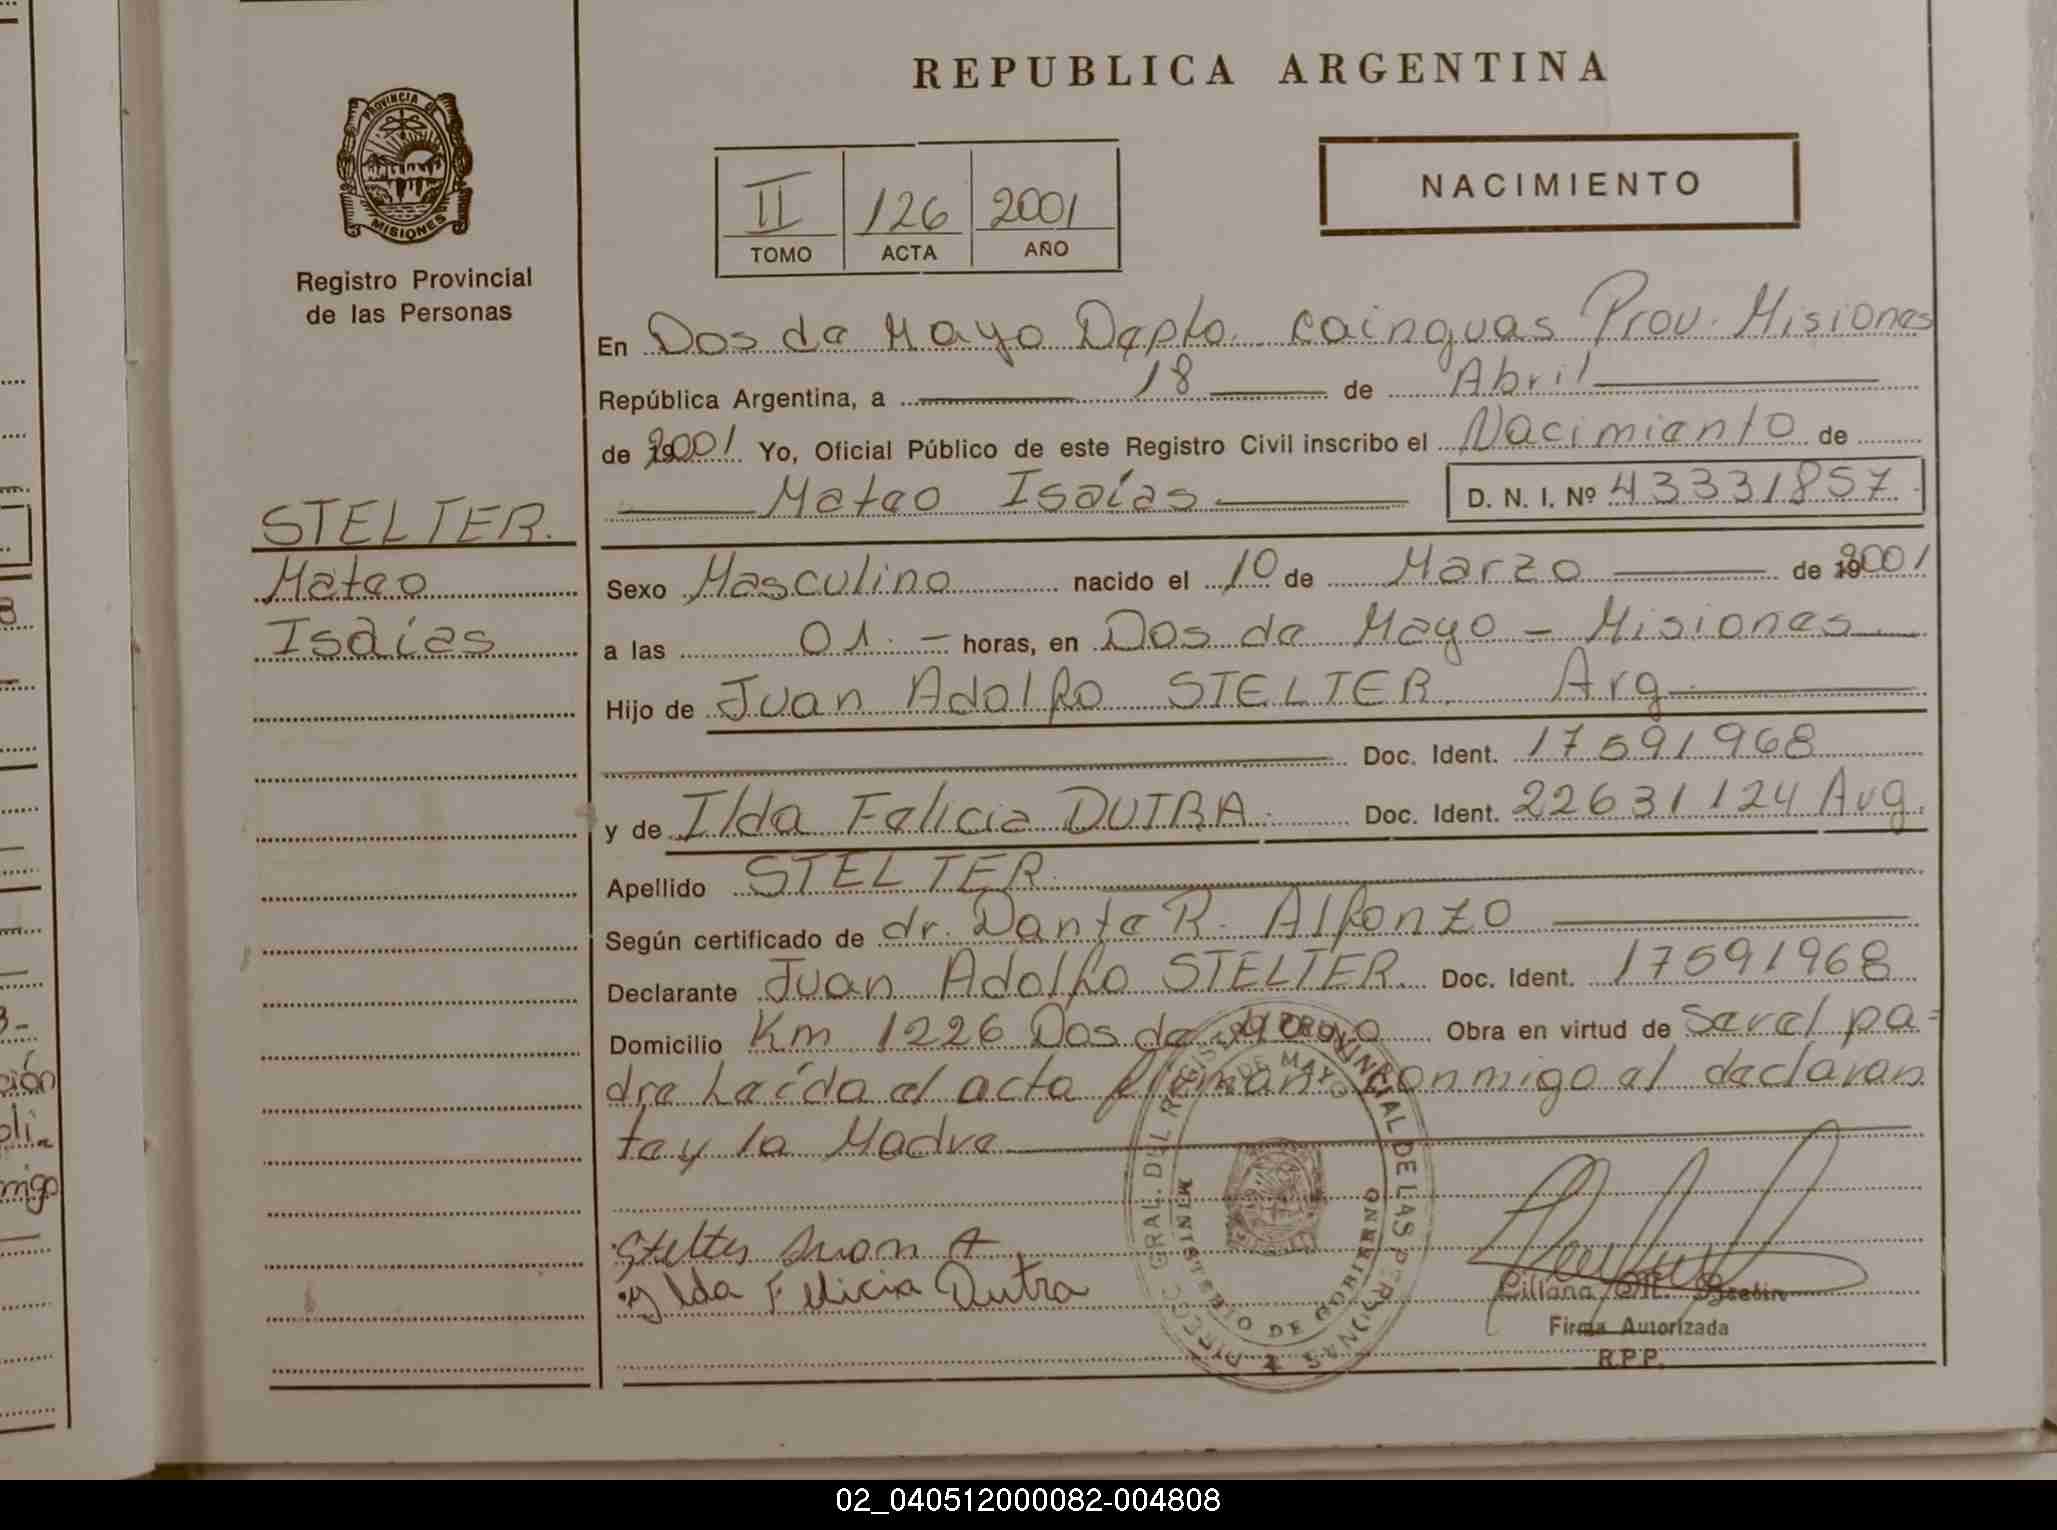 REPUBLICA ARGENTINA
PROVINCIA DE
MISIONES
Registro Provincial
de las Personas
II 126 2001
TOMO ACTA AÑO
NACIMIENTO
En Dos de Mayo Depto. Cainguas Prov. Misiones
República Argentina, a 18 de Abril
de 2001 Yo, Oficial Público de este Registro Civil inscribo el Nacimiento de
Mateo Isaías D. N. I. Nº 43331857
STELTER.
Mateo
Isaías
Sexo Masculino nacido el 10 de Marzo de 2001
a las 01.- horas, en Dos de Mayo - Misiones
Hijo de Juan Adolfo STELTER. Arg
Doc. Ident. 17591968
y de Ilda Felicia DUTRA. Doc. Ident. 22631124 Arg.
Apellido STELTER.
Según certificado de dr. Dante R. Alfonzo
Declarante Juan Adolfo STELTER. Doc. Ident. 17591968
Domicilio Km 1226 Dos de Mayo Obra en virtud de ser el pa=
dre Leída el acta firman conmigo el declaran
te y la Madre
Stelter Juan A
Ylda Felicia Dutra
DIRECC. GRAL. DEL REGISTRO PROVINCIAL DE LAS PERSONAS
DE MAYO
MINISTERIO DE GOBIERNO
Firma Autorizada
R.P.P.
02_040512000082-004808